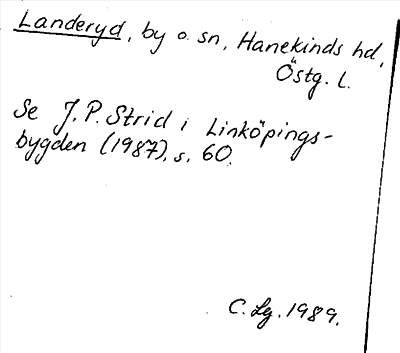 Landeryd, by o. sn, Hanekinds hd,
Östg. l.
Se J. P. Strid i Linköpings-
bygden (1987), s. 60.
C. Lg. 1989.